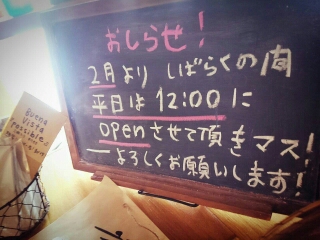 おしらせ!
2月より しばらくの間
平日は 12:00に
openさせて頂きマス!
よろしくお願いします!